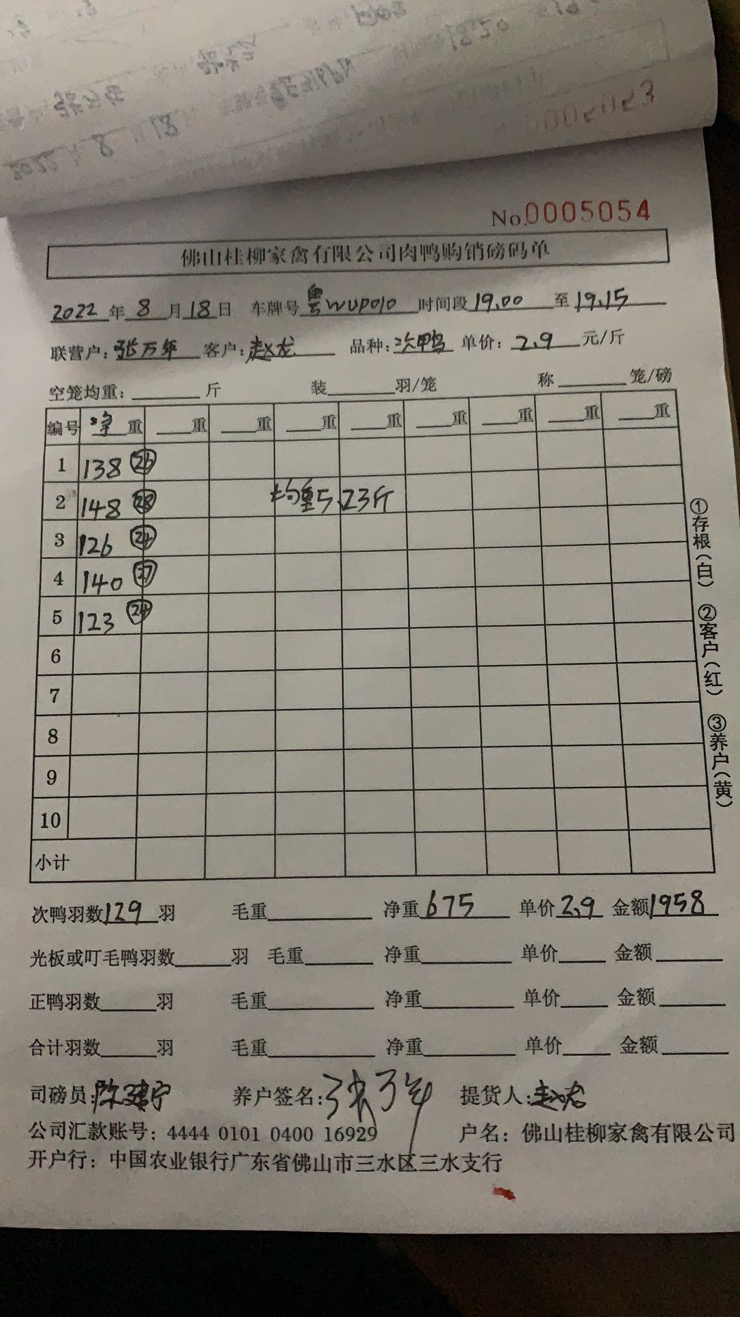 2022 8 18
0005053
No.0005054
佛山桂柳家禽有限公司肉鸭购销磅码单
2022年8月18日 车牌号粤WUP010 时间段19.00至19.15
联营户:张万年 客户:赵龙 品种:次鸭 单价:2.9元/斤
空笼均重:______斤 装______羽/笼 称______笼/磅
编号 净重 ___重 ___重 ___重 ___重 ___重 ___重 ___重 ___重
1 138 26
2 148 28 均重5.23斤
3 126 24
4 140 27
5 123 24
6
7
8
9
10
小计
①存根(白) ②客户(红) ③养户(黄)
次鸭羽数129羽 毛重______ 净重675 单价2.9 金额1958
光板或叮毛鸭羽数_____羽 毛重______ 净重______ 单价____ 金额______
正鸭羽数_____羽 毛重______ 净重______ 单价____ 金额______
合计羽数_____羽 毛重______ 净重______ 单价____ 金额______
司磅员:陈建宁 养户签名:张万年 提货人:赵龙
公司汇款账号: 4444 0101 0400 16929 户名: 佛山桂柳家禽有限公司
开户行: 中国农业银行广东省佛山市三水区三水支行